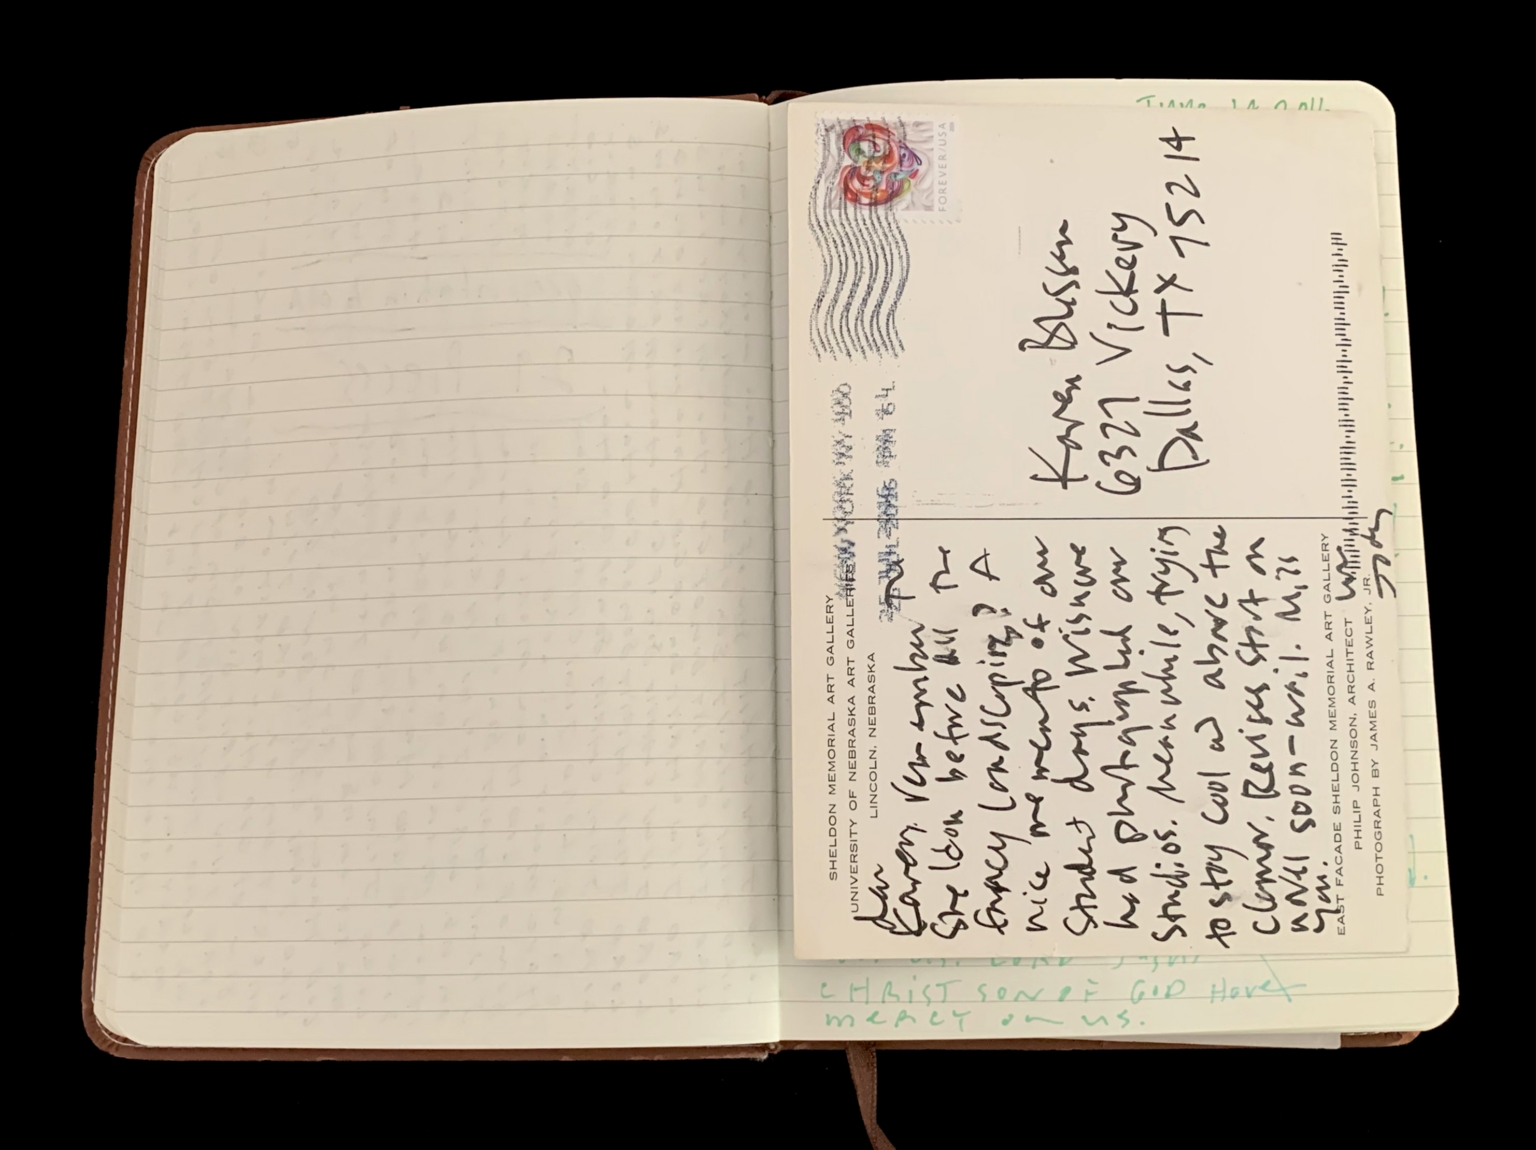 June 19 2016
SHELDON MEMORIAL ART GALLERY
UNIVERSITY OF NEBRASKA ART GALLERIES
LINCOLN, NEBRASKA
Dear
Karen. Remember The
Sheldon before all The
fancy landscaping? A
nice memento of our
student days. Wish we
had photographed our
studios. Meanwhile, trying
to stay cool and above the
clamor. Revises start on
novel soon—wail. Miss
you.
Jody
EAST FACADE SHELDON MEMORIAL ART GALLERY
PHILIP JOHNSON, ARCHITECT
PHOTOGRAPH BY JAMES A. RAWLEY, JR.
NEW YORK NY 100
FOREVER/USA
Karen Blessen
6327 Vickery
Dallas, TX 75214
LORD
CHRIST SON OF GOD Have
mercy on us.